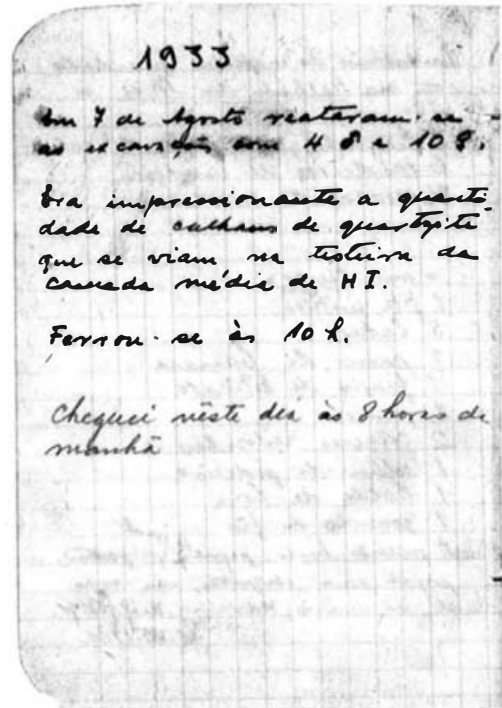 1933
Em 7 de Agosto reataram-se
as excavações com 4 ♂ e 10 ♀.
Era impressionante a quanti
dade de calhaus de quartzite
que se viam na testeira da
camada média de HI.
Ferrou-se às 10 h.
Cheguei nêste dia às 8 horas da
manhã